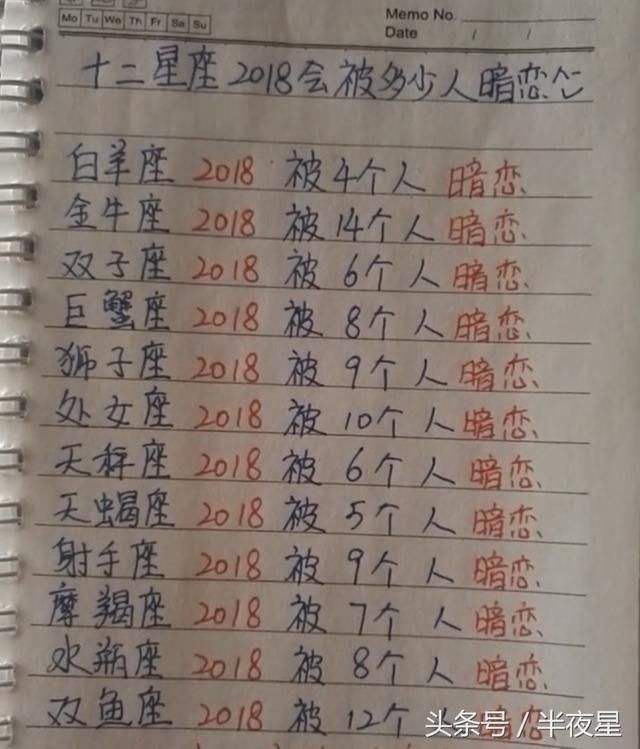 Memo No.
Mo Tu We Th Fr Sa Su
Date / /
十二星座2018会被多少人暗恋
白羊座 2018 被4个人 暗恋
金牛座 2018 被14个人 暗恋
双子座 2018 被6个人 暗恋
巨蟹座 2018 被8个人 暗恋
狮子座 2018 被9个人 暗恋
处女座 2018 被10个人 暗恋
天秤座 2018 被6个人 暗恋
天蝎座 2018 被5个人 暗恋
射手座 2018 被9个人 暗恋
摩羯座 2018 被7个人 暗恋
水瓶座 2018 被8个人 暗恋
双鱼座 2018 被12个人 暗恋
头条号 / 半夜星